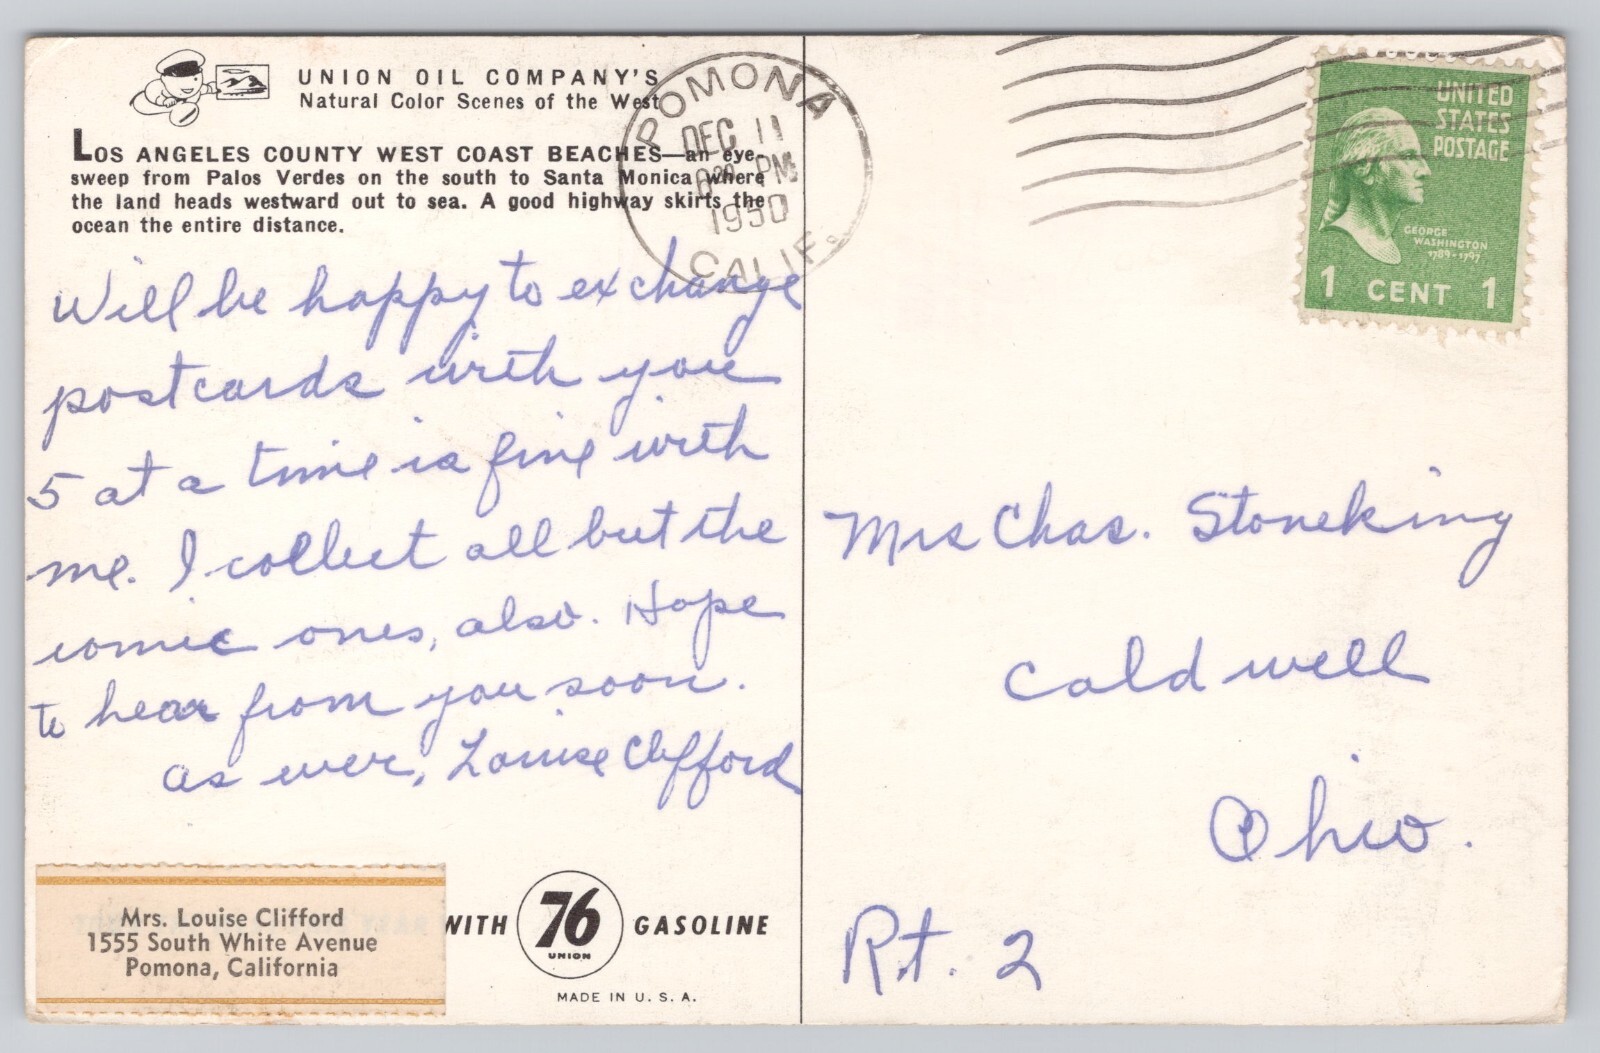 UNION OIL COMPANY'S
Natural Color Scenes of the West
LOS ANGELES COUNTY WEST COAST BEACHES—an eye
sweep from Palos Verdes on the south to Santa Monica where
the land heads westward out to sea. A good highway skirts the
ocean the entire distance.
POMONA
DEC 11
PM
1950
CALIF.
UNITED
STATES
POSTAGE
GEORGE
WASHINGTON
1789-1797
1 CENT 1
Will be happy to exchange
postcards with you
5 at a time is fine with
me. I collect all but the
comic ones, also. Hope
to hear from you soon.
as ever, Louise Clifford
Mrs Chas. Stoneking
Caldwell
Ohio.
Rt. 2
Mrs. Louise Clifford
1555 South White Avenue
Pomona, California
WITH 76 GASOLINE
UNION
MADE IN U. S. A.